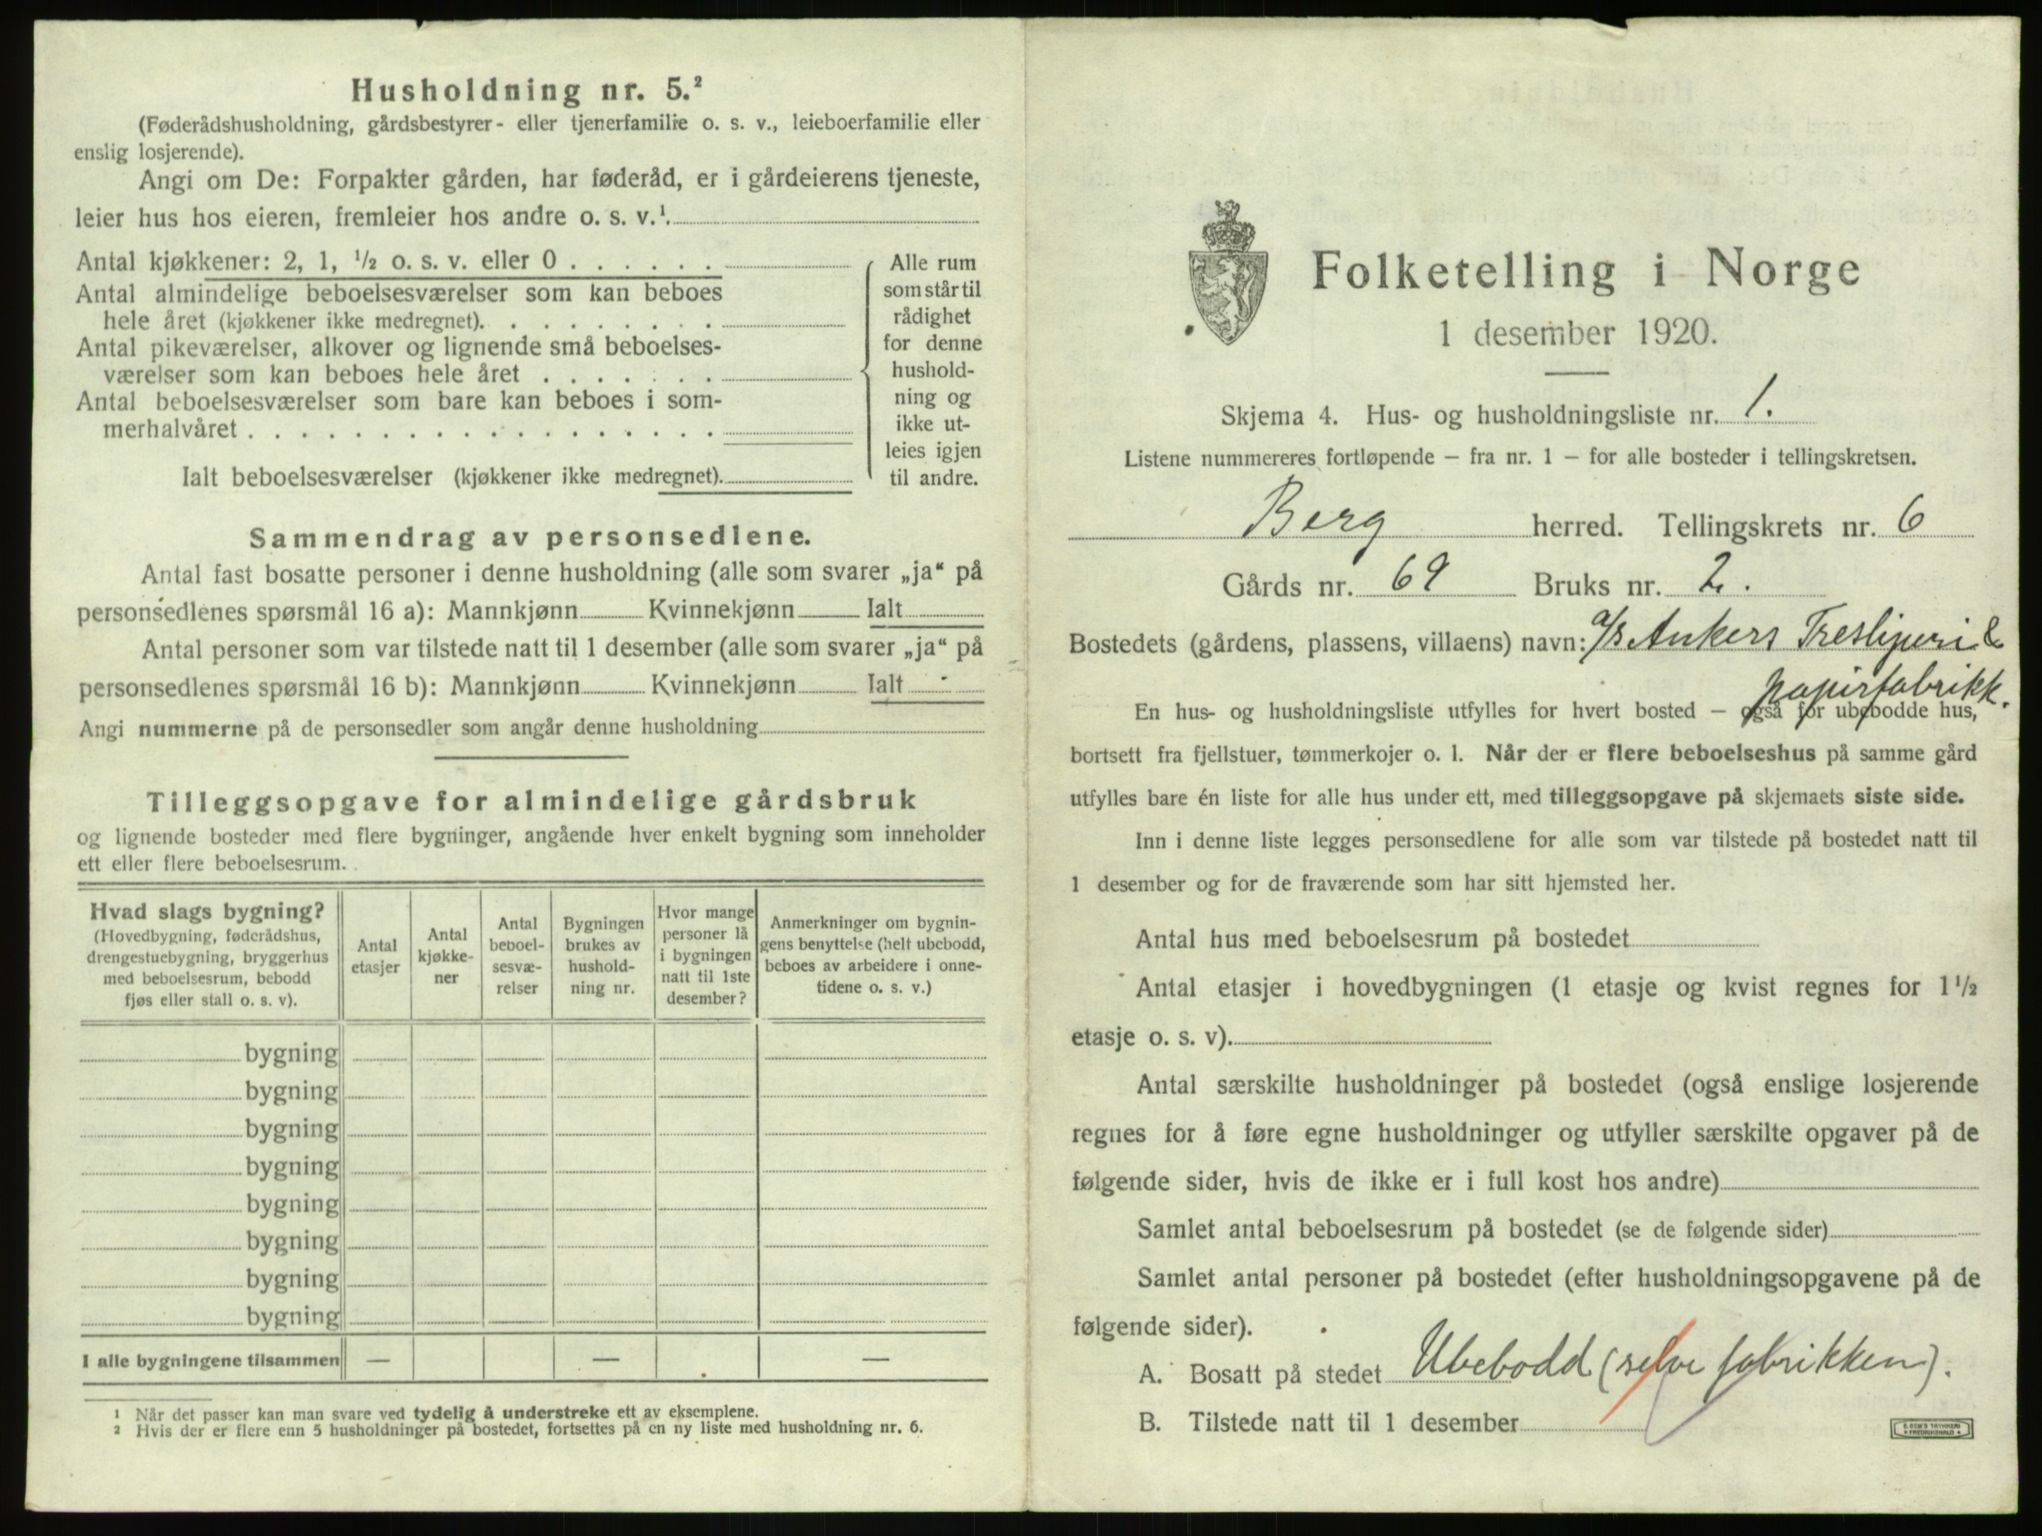 Husholdning nr. 5.²
(Føderådshusholdning, gårdsbestyrer- eller tjenerfamilie o. s. v., leieboerfamilie eller
enslig losjerende).
Angi om De: Forpakter gården, har føderåd, er i gårdeierens tjeneste,
leier hus hos eieren, fremleier hos andre o. s. v.¹.
Antal kjøkkener: 2, 1, ½ o. s. v. eller 0 . . . . . .
Antal almindelige beboelsesværelser som kan beboes
hele året (kjøkkener ikke medregnet). . . . . . . . .
Antal pikeværelser, alkover og lignende små beboelses-
værelser som kan beboes hele året . . . . . . .
Antal beboelsesværelser som bare kan beboes i som-
merhalvåret . . . . . . . . . . . . . . . . . .
Ialt beboelsesværelser (kjøkkener ikke medregnet).
Alle rum
som står til
rådighet
for denne
hushold-
ning og
ikke ut-
leies igjen
til andre.
Sammendrag av personsedlene.
Antal fast bosatte personer i denne husholdning (alle som svarer „ja“ på
personsedlenes spørsmål 16 a): Mannkjønn Kvinnekjønn Ialt
Antal personer som var tilstede natt til 1 desember (alle som svarer „ja“ på
personsedlenes spørsmål 16 b): Mannkjønn Kvinnekjønn Ialt
Angi nummerne på de personsedler som angår denne husholdning
Tilleggsopgave for almindelige gårdsbruk
og lignende bosteder med flere bygninger, angående hver enkelt bygning som inneholder
ett eller flere beboelsesrum.
Hvad slags bygning?
(Hovedbygning, føderådshus,
drengestuebygning, bryggerhus
med beboelsesrum, bebodd
fjøs eller stall o. s. v).
Antal
etasjer
Antal
kjøkke-
ner
Antal
beboel-
sesvæ-
relser
Bygningen
brukes av
hushold-
ning nr.
Hvor mange
personer lå
i bygningen
natt til 1ste
desember?
Anmerkninger om bygnin-
gens benyttelse (helt ubebodd,
beboes av arbeidere i onne-
tidene o. s. v.)
bygning
bygning
bygning
bygning
bygning
bygning
bygning
bygning
I alle bygningene tilsammen — — —
¹ Når det passer kan man svare ved tydelig å understreke ett av eksemplene.
² Hvis der er flere enn 5 husholdninger på bostedet, fortsettes på en ny liste med husholdning nr. 6.
Folketelling i Norge
1 desember 1920.
Skjema 4. Hus- og husholdningsliste nr. 1.
Listene nummereres fortløpende – fra nr. 1 – for alle bosteder i tellingskretsen.
Berg herred. Tellingskrets nr. 6
Gårds nr. 69 Bruks nr. 2.
Bostedets (gårdens, plassens, villaens) navn: A/S Ankers Tresliperi &
papirfabrikk.
En hus- og husholdningsliste utfylles for hvert bosted – også for ubebodde hus,
bortsett fra fjellstuer, tømmerkojer o. l. Når der er flere beboelseshus på samme gård
utfylles bare én liste for alle hus under ett, med tilleggsopgave på skjemaets siste side.
Inn i denne liste legges personsedlene for alle som var tilstede på bostedet natt til
1 desember og for de fraværende som har sitt hjemsted her.
Antal hus med beboelsesrum på bostedet
Antal etasjer i hovedbygningen (1 etasje og kvist regnes for 1½
etasje o. s. v).
Antal særskilte husholdninger på bostedet (også enslige losjerende
regnes for å føre egne husholdninger og utfyller særskilte opgaver på de
følgende sider, hvis de ikke er i full kost hos andre)
Samlet antal beboelsesrum på bostedet (se de følgende sider)
Samlet antal personer på bostedet (efter husholdningsopgavene på de
følgende sider).
A. Bosatt på stedet Ubebodd (selve fabrikken).
B. Tilstede natt til 1 desember